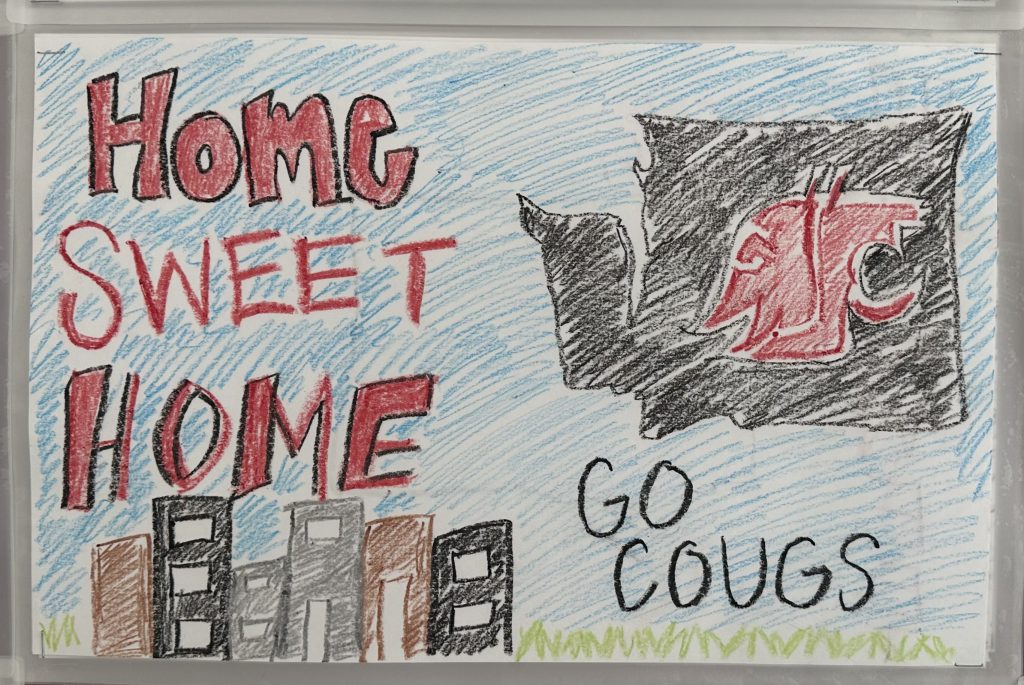 Home
SWEET
HOME
GO
COUGS